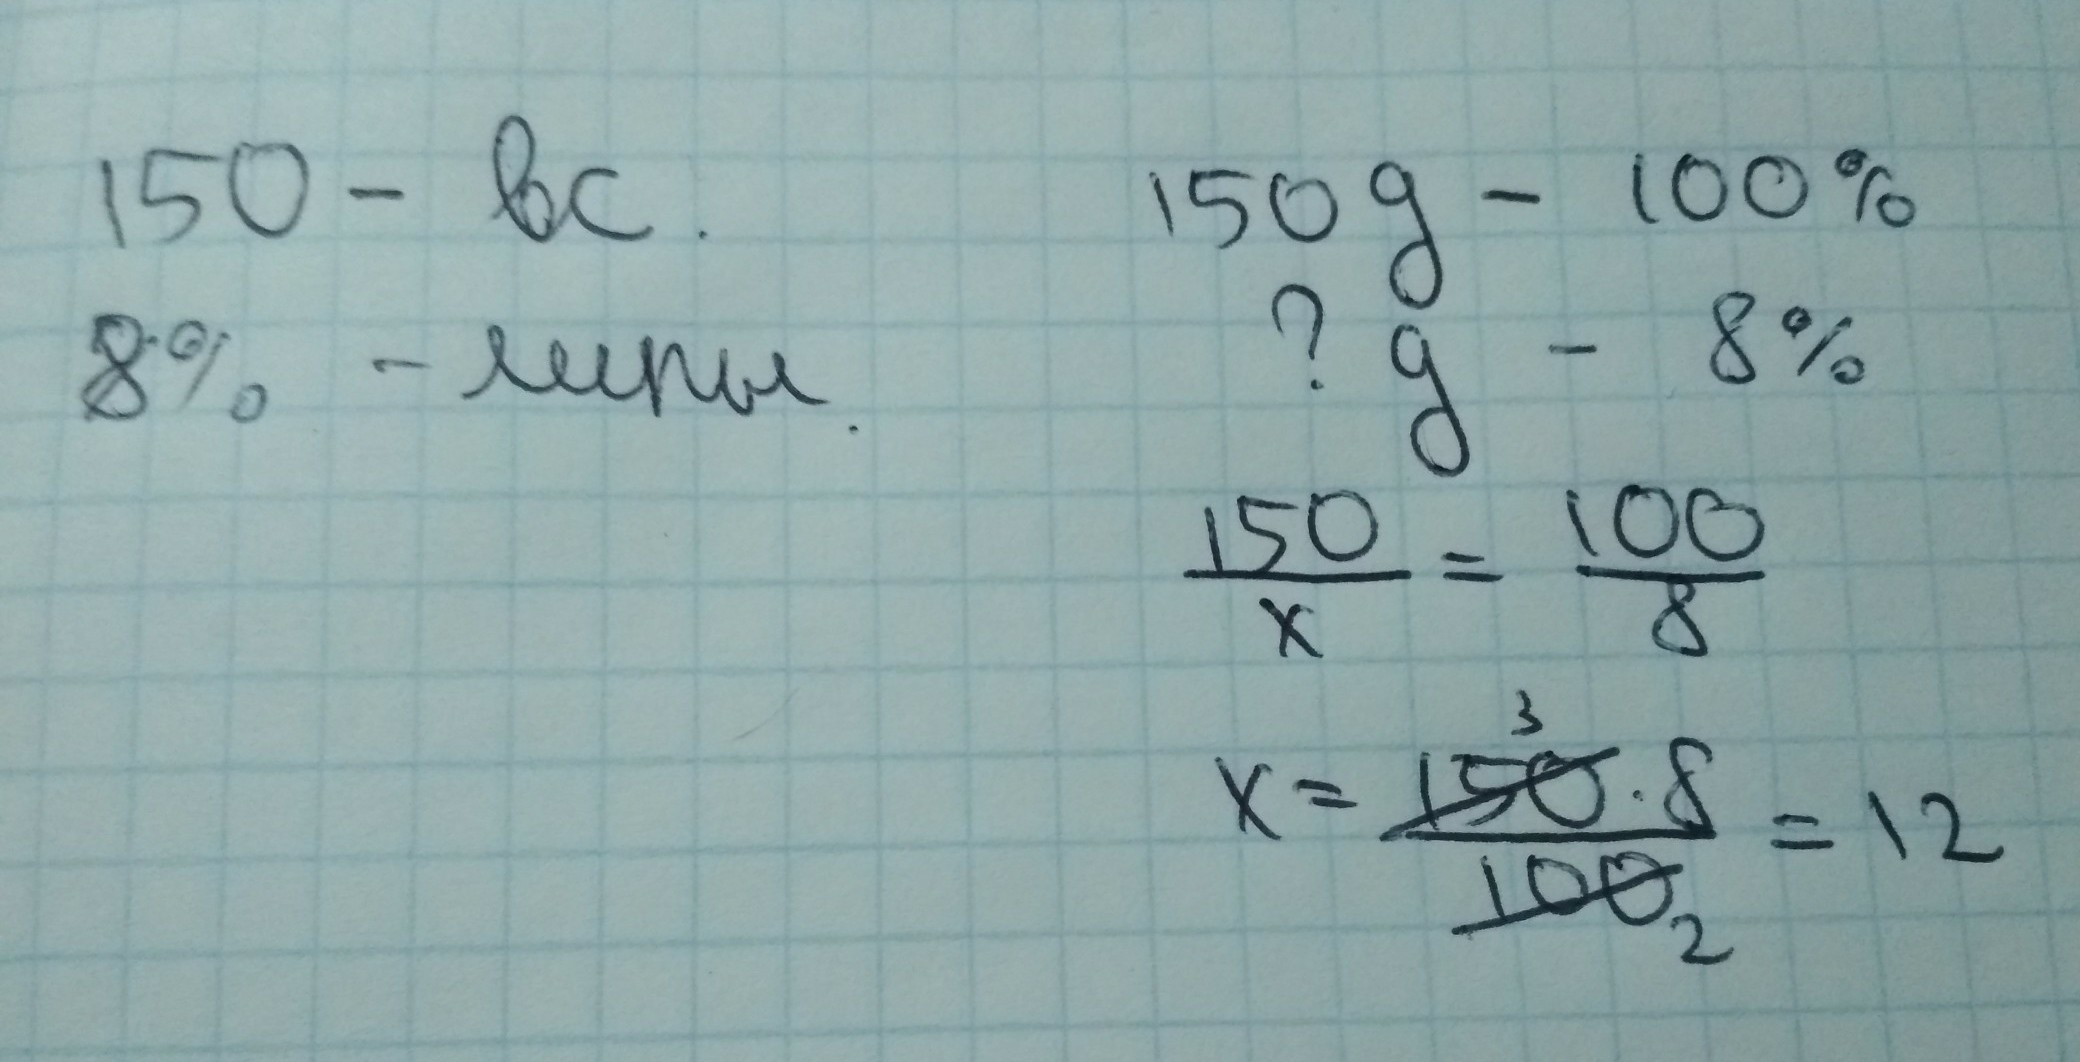 150 - вс.
8% - липы.
150 д - 100%
? д - 8%
150/x = 100/8
x = 150 · 8 / 100 = 12
3
2